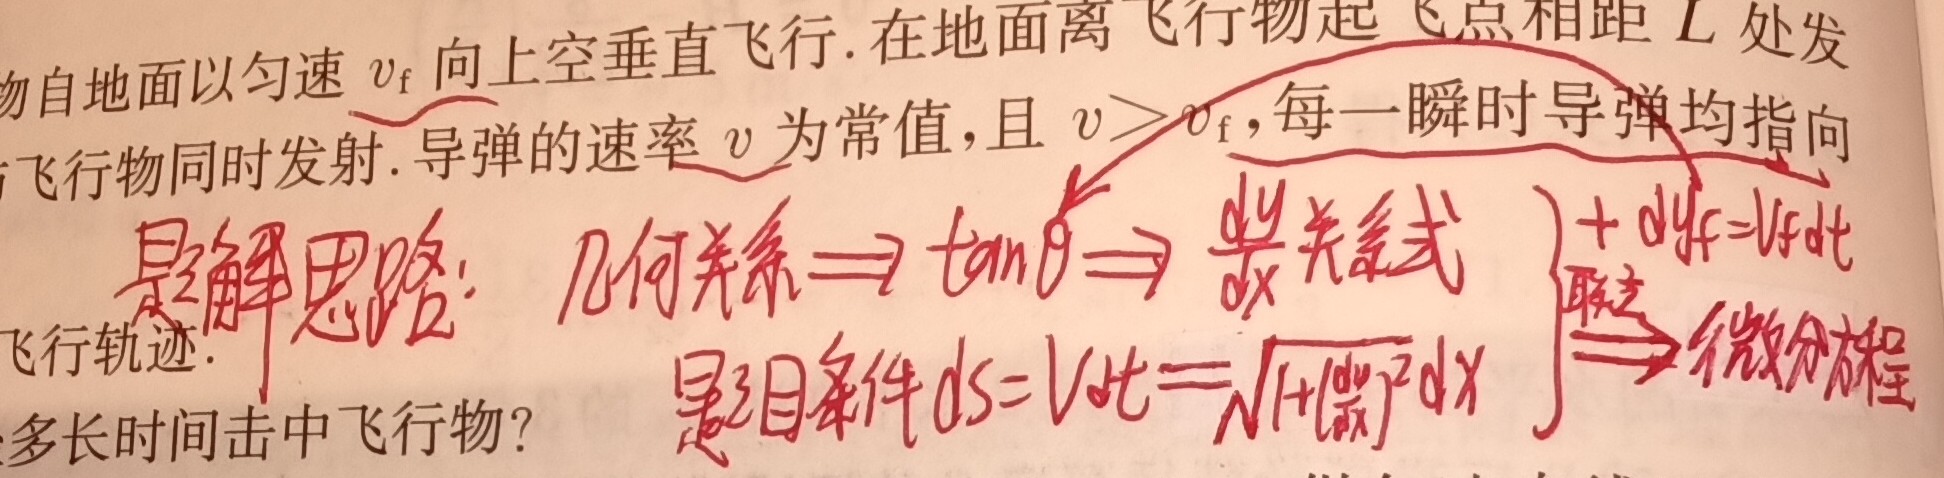 物自地面以匀速 v_f 向上空垂直飞行.在地面离飞行物起飞点相距 L 处发
飞行物同时发射.导弹的速率 v 为常值,且 v>v_f,每一瞬时导弹均指向
题解思路: 几何关系⇒tanθ⇒dy/dx关系式 } + dy_f=V_f dt
联立⇒微分方程
飞行轨迹.
题目条件 ds=Vdt=√(1+(dy/dx)²)dx
多长时间击中飞行物?